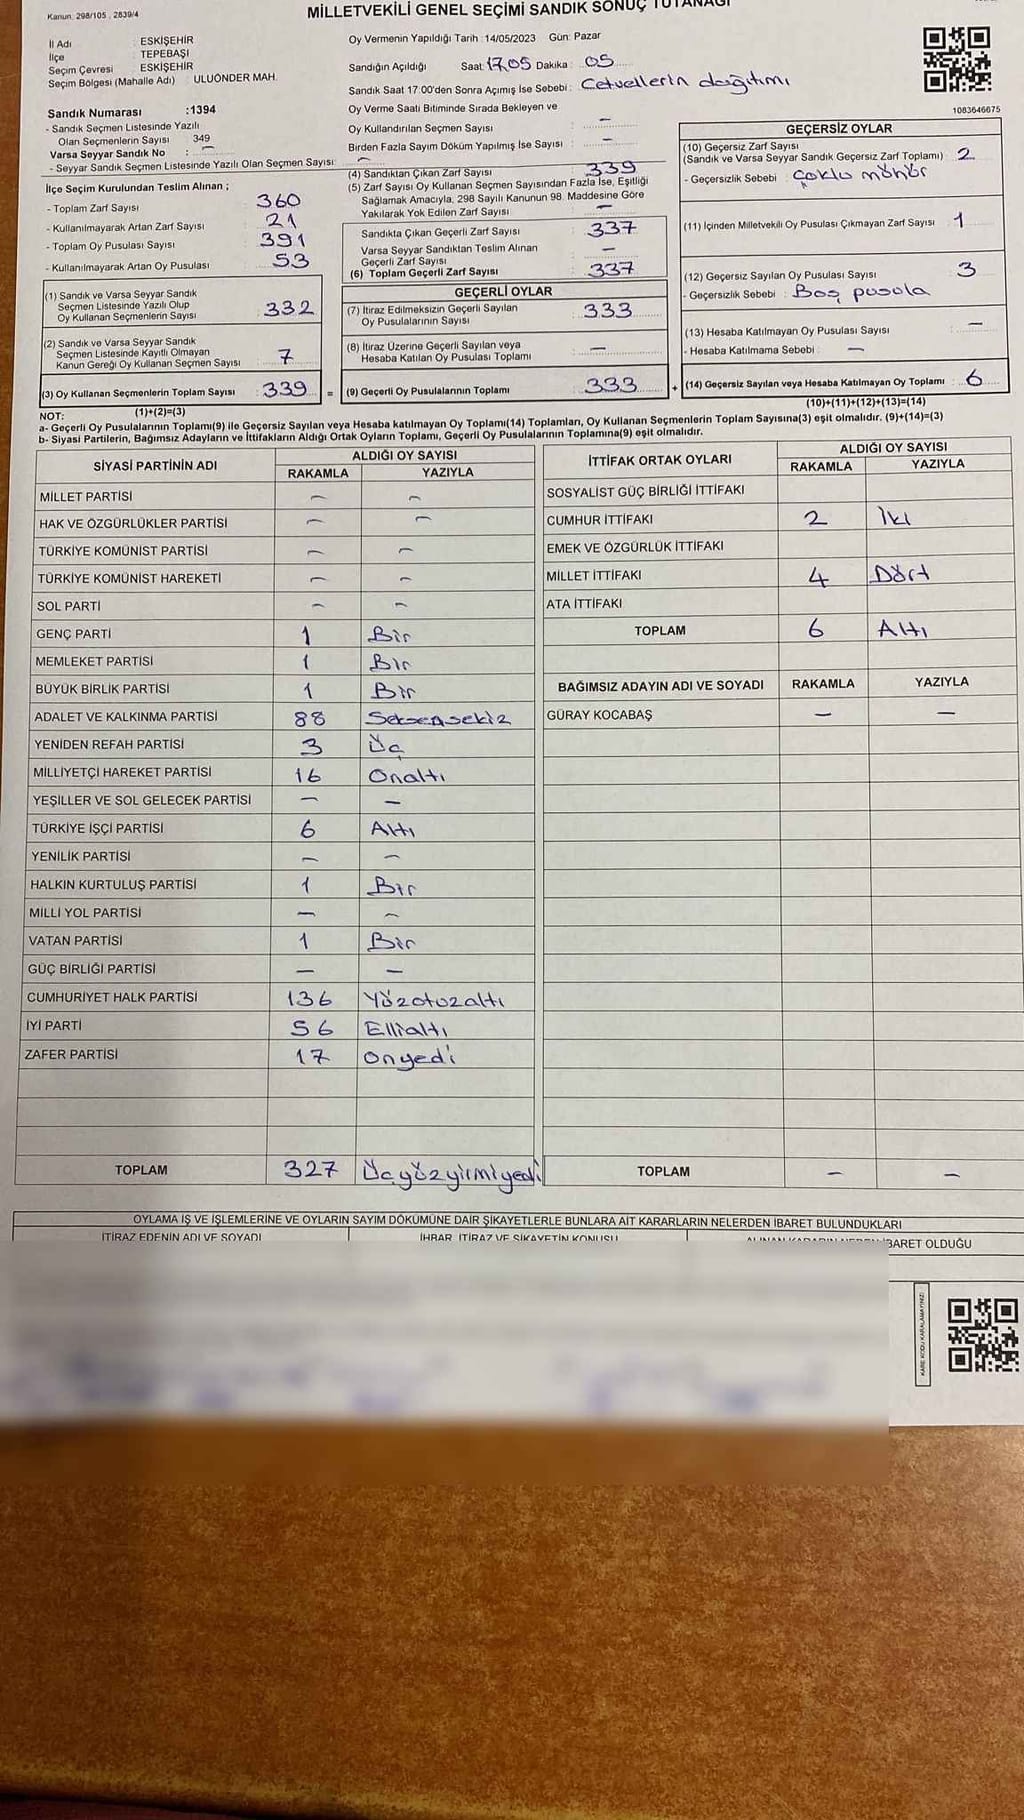 Kanun: 298/105 , 2839/4
MİLLETVEKİLİ GENEL SEÇİMİ SANDIK SONUÇ TUTANAĞI
İl Adı : ESKİŞEHİR
İlçe : TEPEBAŞI
Seçim Çevresi : ESKİŞEHİR
Seçim Bölgesi (Mahalle Adı) : ULUÖNDER MAH.
Oy Vermenin Yapıldığı Tarih :14/05/2023 Gün: Pazar
Sandığın Açıldığı Saat: 17,05 Dakika : 05
Sandık Saat 17:00'den Sonra Açımış İse Sebebi : Cetvellerin dağıtımı
Oy Verme Saati Bitiminde Sırada Bekleyen ve
Oy Kullandırılan Seçmen Sayısı : —
Birden Fazla Sayım Döküm Yapılmış İse Sayısı : —
1083646675
Sandık Numarası :1394
- Sandık Seçmen Listesinde Yazılı
Olan Seçmenlerin Sayısı : 349
Varsa Seyyar Sandık No : —
- Seyyar Sandık Seçmen Listesinde Yazılı Olan Seçmen Sayısı: —
İlçe Seçim Kurulundan Teslim Alınan ;
- Toplam Zarf Sayısı : 360
- Kullanılmayarak Artan Zarf Sayısı : 21
- Toplam Oy Pusulası Sayısı : 391
- Kullanılmayarak Artan Oy Pusulası : 53
(1) Sandık ve Varsa Seyyar Sandık
Seçmen Listesinde Yazılı Olup
Oy Kullanan Seçmenlerin Sayısı : 332
(2) Sandık ve Varsa Seyyar Sandık
Seçmen Listesinde Kayıtlı Olmayan
Kanun Gereği Oy Kullanan Seçmen Sayısı : 7
(3) Oy Kullanan Seçmenlerin Toplam Sayısı : 339 =
(1)+(2)=(3)
(4) Sandıktan Çıkan Zarf Sayısı : 339
(5) Zarf Sayısı Oy Kullanan Seçmen Sayısından Fazla İse, Eşitliği
Sağlamak Amacıyla, 298 Sayılı Kanunun 98. Maddesine Göre
Yakılarak Yok Edilen Zarf Sayısı : —
Sandıkta Çıkan Geçerli Zarf Sayısı : 337
Varsa Seyyar Sandıktan Teslim Alınan
Geçerli Zarf Sayısı : —
(6) Toplam Geçerli Zarf Sayısı : 337
GEÇERLİ OYLAR
(7) İtiraz Edilmeksizin Geçerli Sayılan
Oy Pusulalarının Sayısı : 333
(8) İtiraz Üzerine Geçerli Sayılan veya
Hesaba Katılan Oy Pusulası Toplamı : —
(9) Geçerli Oy Pusulalarının Toplamı : 333 +
GEÇERSİZ OYLAR
(10) Geçersiz Zarf Sayısı
(Sandık ve Varsa Seyyar Sandık Geçersiz Zarf Toplamı) : 2
- Geçersizlik Sebebi : Çoklu mühür
(11) İçinden Milletvekili Oy Pusulası Çıkmayan Zarf Sayısı : 1
(12) Geçersiz Sayılan Oy Pusulası Sayısı : 3
- Geçersizlik Sebebi : Boş pusula
(13) Hesaba Katılmayan Oy Pusulası Sayısı : —
- Hesaba Katılmama Sebebi : —
(14) Geçersiz Sayılan veya Hesaba Katılmayan Oy Toplamı : 6
(10)+(11)+(12)+(13)=(14)
NOT:
a- Geçerli Oy Pusulalarının Toplamı(9) ile Geçersiz Sayılan veya Hesaba katılmayan Oy Toplamı(14) Toplamları, Oy Kullanan Seçmenlerin Toplam Sayısına(3) eşit olmalıdır. (9)+(14)=(3)
b- Siyasi Partilerin, Bağımsız Adayların ve İttifakların Aldığı Ortak Oyların Toplamı, Geçerli Oy Pusulalarının Toplamına(9) eşit olmalıdır.
SİYASİ PARTİNİN ADI ALDIĞI OY SAYISI
RAKAMLA YAZIYLA
MİLLET PARTİSİ — —
HAK VE ÖZGÜRLÜKLER PARTİSİ — —
TÜRKİYE KOMÜNİST PARTİSİ — —
TÜRKİYE KOMÜNİST HAREKETİ — —
SOL PARTİ — —
GENÇ PARTİ 1 Bir
MEMLEKET PARTİSİ 1 Bir
BÜYÜK BİRLİK PARTİSİ 1 Bir
ADALET VE KALKINMA PARTİSİ 88 Seksensekiz
YENİDEN REFAH PARTİSİ 3 Üç
MİLLİYETÇİ HAREKET PARTİSİ 16 Onaltı
YEŞİLLER VE SOL GELECEK PARTİSİ — —
TÜRKİYE İŞÇİ PARTİSİ 6 Altı
YENİLİK PARTİSİ — —
HALKIN KURTULUŞ PARTİSİ 1 Bir
MİLLİ YOL PARTİSİ — —
VATAN PARTİSİ 1 Bir
GÜÇ BİRLİĞİ PARTİSİ — —
CUMHURİYET HALK PARTİSİ 136 Yüzotuzaltı
İYİ PARTİ 56 Ellialtı
ZAFER PARTİSİ 17 Onyedi
TOPLAM 327 Üçyüzyirmiyedi
İTTİFAK ORTAK OYLARI ALDIĞI OY SAYISI
RAKAMLA YAZIYLA
SOSYALİST GÜÇ BİRLİĞİ İTTİFAKI
CUMHUR İTTİFAKI 2 İki
EMEK VE ÖZGÜRLÜK İTTİFAKI
MİLLET İTTİFAKI 4 Dört
ATA İTTİFAKI
TOPLAM 6 Altı
BAĞIMSIZ ADAYIN ADI VE SOYADI RAKAMLA YAZIYLA
GÜRAY KOCABAŞ — —
TOPLAM — —
OYLAMA İŞ VE İŞLEMLERİNE VE OYLARIN SAYIM DÖKÜMÜNE DAİR ŞİKAYETLERLE BUNLARA AİT KARARLARIN NELERDEN İBARET BULUNDUKLARI
İTİRAZ EDENİN ADI VE SOYADI İHBAR, İTİRAZ VE ŞİKAYETİN KONUSU İBARET OLDUĞU
KARE KODU KARALAMAYINIZ!